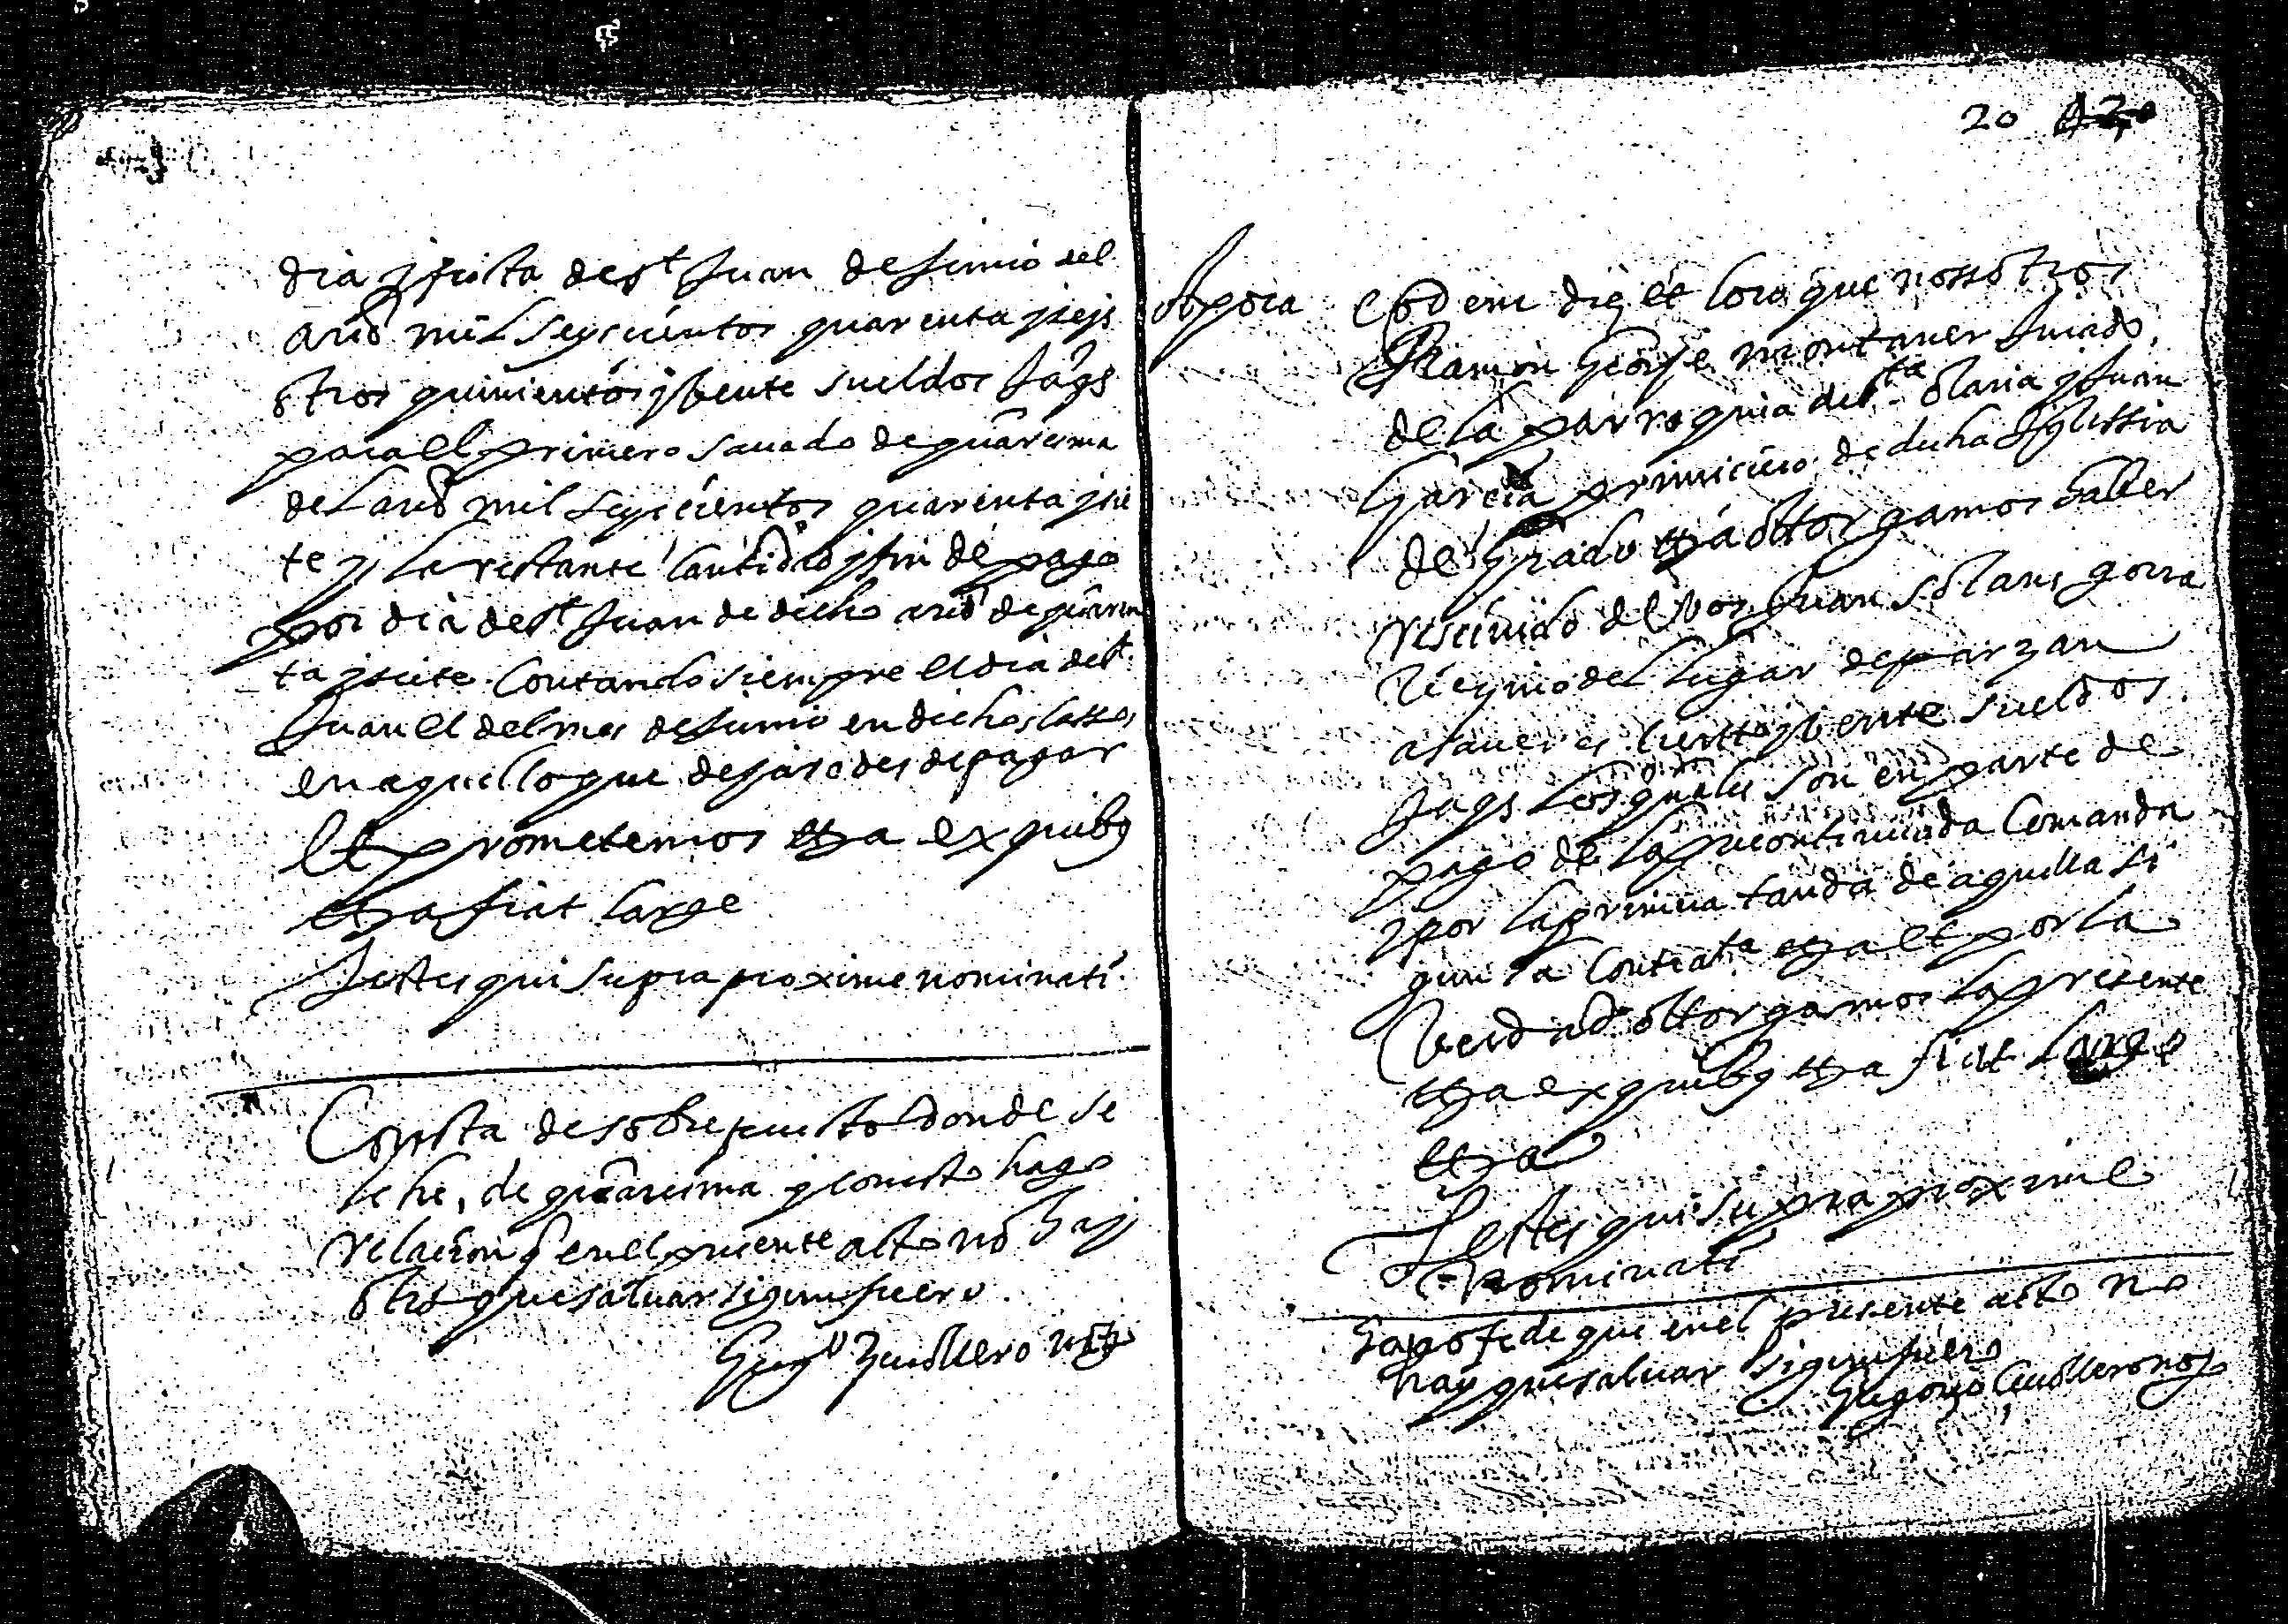 dia y fiesta de st Juan de Junio del
año mil seyscientos quarenta y seys
otros quinientos y vente sueldos Jags
para el primero sauado de quaresma
del año mil seyscientos quarenta y sie
te y la restante cantidad y fin de pago
por dia de st Juan de dicho año de quaren
ta y siete. Contando siempre el dia de st
Juan el del mes de Junio en dichos casos
en aquello que dejaredes de pagar
Et prometemos etta ex quibus
etta fiat large
Testes qui supra proxime nominati
Consta de sobrepuesto donde se
lehe, de quaresma y con esto hago
relacion q en el presente acto no hay
otro que saluar sigun fuero.
Greg⁰ Zeuollero not
20
Apoca
Eodem die et loco que nosotros
Ramon George montaner
de la parroquia de sta Maria y Juan
Garcia primiciero de dicha Iglessia
de Grado etta ottorgamos haber
resciuido de vos Juan Solans gorra
Vezino del lugar de parzan
asauer es ciento y vente sueldos
Jags los quales son en parte de
pago de la precontinuada Comanda
y por la primera tanda de aquella si
gun la Contrata etta et por la
Verdad ottorgamos la presente
etta ex quibus etta fiat large
etta
Testes qui supra proxime
nominati
Hago fe de que en el presente acto no
hay que saluar sigun fuero
Gregorio Ceuollero not